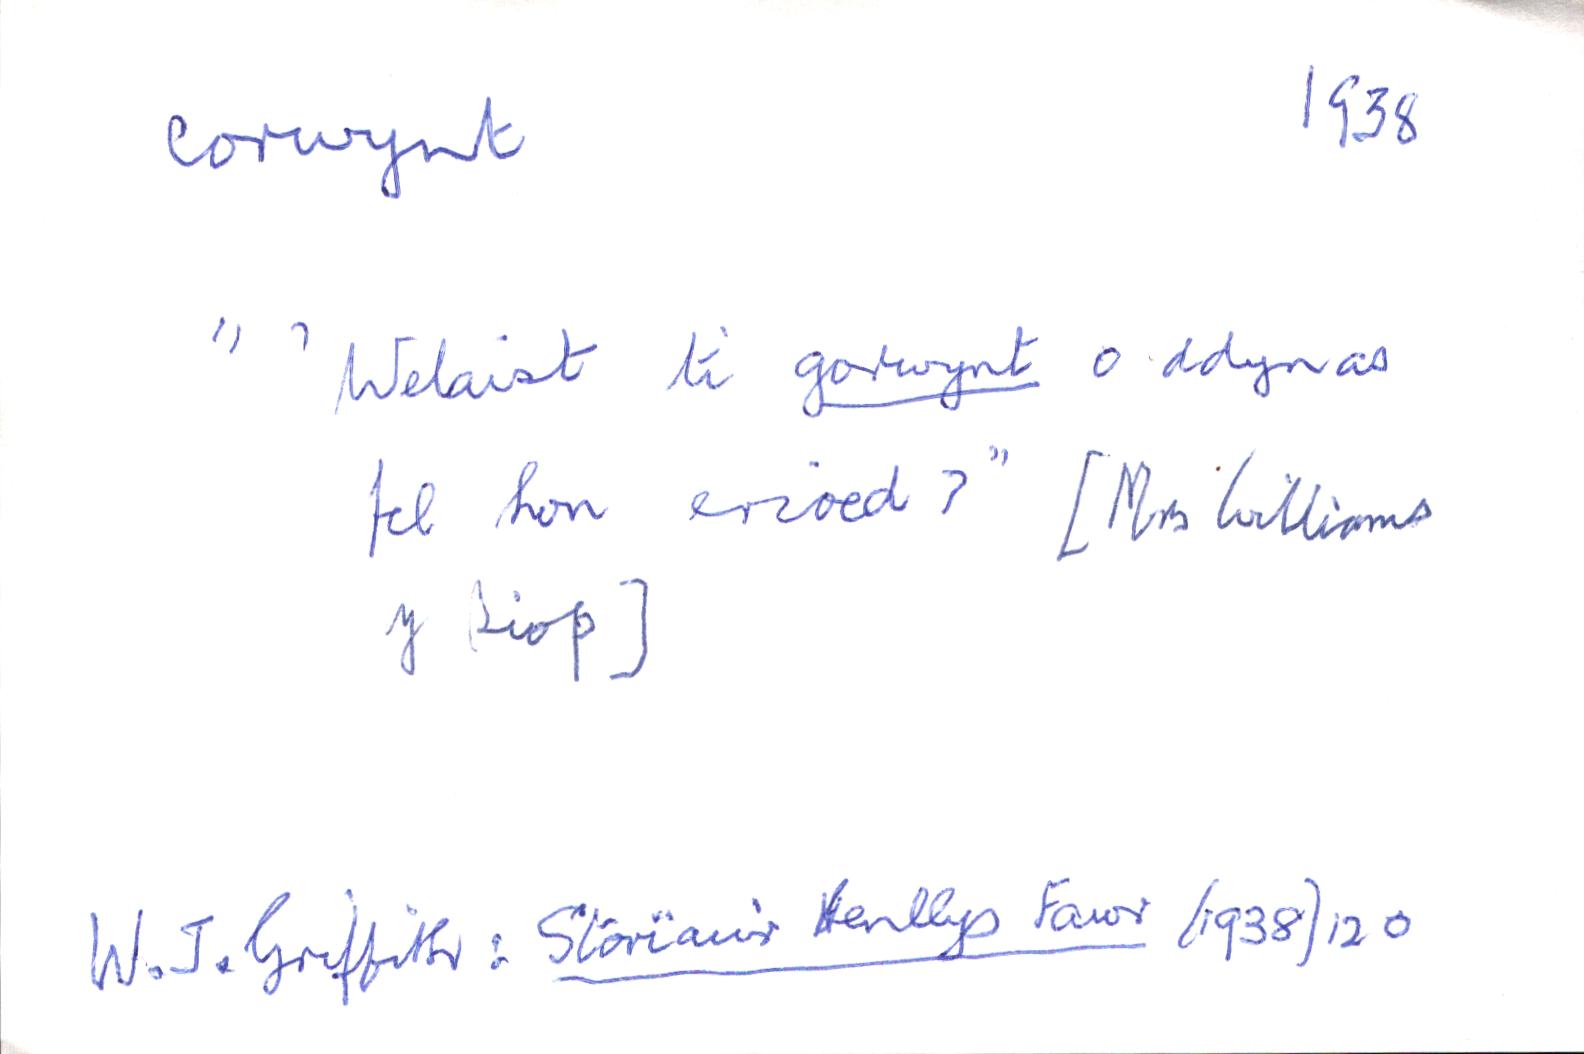 corwynt 1938
" 'Welaist ti gorwynt o ddynas
fel hon erioed?" [Mrs Williams
y Siop]
W. J. Griffith: Storïau'r Henllys Fawr (1938) 120